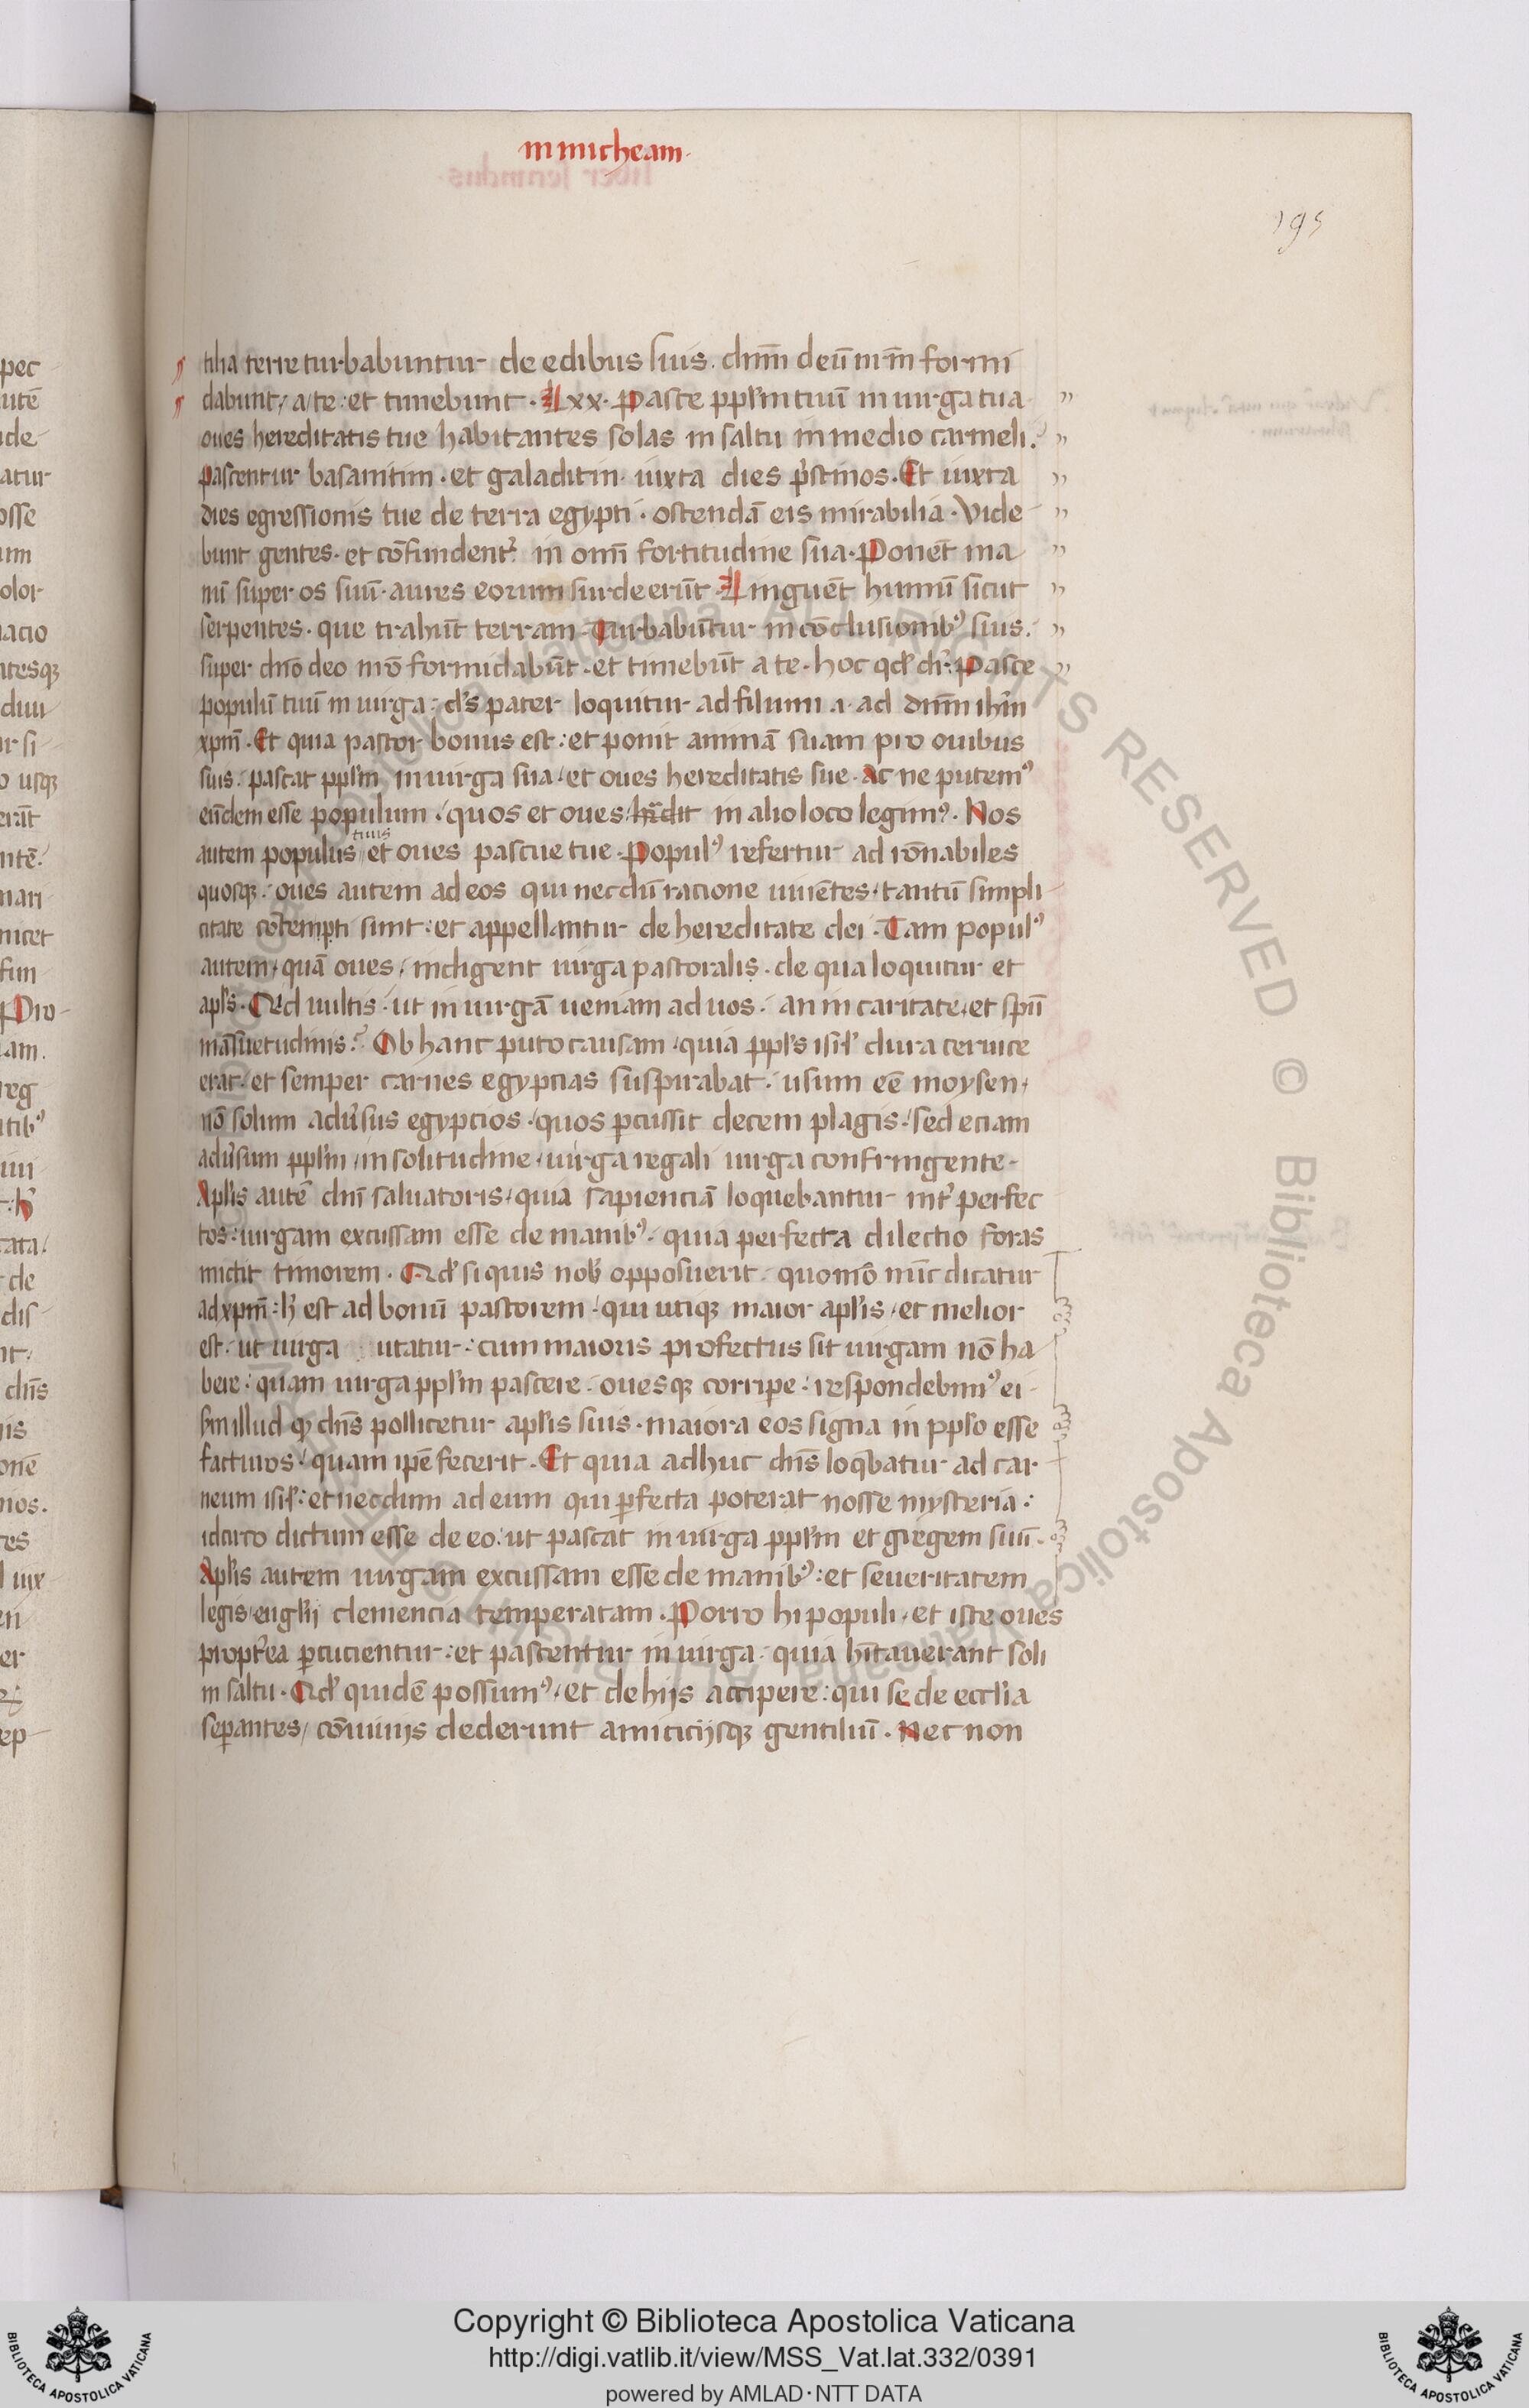 in micheam.
195
tilia terre turbabuntur de edibus suis. dn̄m deū nr̄m formi
dabunt / a te : et timebunt. Lxx. Pasce ppl̄m tuū in uirga tua
oues hereditatis tue habitantes solas in saltu in medio carmeli.
pascentur basanitim. et galaditin. iuxta dies p̄stinos. Et iuxta
dies egressionis tue de terra egypti. ostendā eis mirabilia. Vide
bunt gentes. et cōfundentr̄ in omī fortitudine sua. Ponēt ma
nū super os suū. aures eorum surde erūt. Linguēt humū sicut
serpentes. que trahūt terram. Turbabūtur in cōclusionibꝰ suis.
super dn̄o deo nr̄o formidabūt. et timebūt a te. hoc qd̄ dr̄: Pasce
populū tuū in uirga: ds̄ pater loquitur ad filium .i. ad dn̄m ih̄m
xp̄m. Et quia pastor bonus est: et ponit animā suam pro ouibus
suis: pascat ppl̄m in uirga sua / et oues hereditatis sue. Ac ne putemꝰ
eūdem esse populum / quos et oues / in alio loco legimꝰ. Nos
autem populus tuus et oues pascue tue. Populꝰ refertur ad rōnabiles
quosqꝫ: oues autem ad eos qui necdū racione uiuētes. tantū simpli
citate cōtempti sunt: et appellantur de hereditate dei. Tam populꝰ
autem / quā oues / indigent uirga pastoralis. de qua loquitur et
apl̄s. Qid uultis: ut in uirgā ueniam ad uos: an in caritate / et spū
māsuetudinis? Ob hanc puto causam / quia ppl̄s isr̄l dura ceruice
erat: et semper carnes egyptias suspirabat: usum eē moysen /
nō solum adūsus egyptios / quos p̄cussit decem plagis: sed eciam
adūsum ppl̄m / in solitudine / uirga regali uirga confringente.
Apl̄is autē dn̄i saluatoris / quia sapienciā loquebantur int̄ perfec
tos: uirgam excussam esse de manibꝰ. quia perfecta dilectio foras
mittit timorem. Qd̄ si quis nob̄ opposuerit. quomō nūc dicatur
ad xp̄m: h̄ est ad bonū pastorem / qui utiqꝫ maior apl̄is / et melior
est: ut uirga utatur: cum maioris profectus sit uirgam nō ha
bere: quam uirga ppl̄m pascere. ouesqꝫ corripe: respondebimꝰ ei
sm̄ illud qꝫ dn̄s pollicetur apl̄is suis. maiora eos signa in ppl̄o esse
facturos / quam ipē fecerit. Et quia adhuc dn̄s loq̄batur ad car
neum isr̄l: et necdum ad eum qui p̄fecta poterat nosse mysteria:
idcirco dictum esse de eo: ut pascat in uirga ppl̄m et gregem suū.
Apl̄is autem uirgam excussam esse de manibꝰ: et seueritatem
legis / eugl̄ij clemencia temperatam. Porro hi populi / et iste oues
propt̄ea p̄cucientur: et pascentur in uirga. quia hītauerant soli
in saltu. Qd̄ quidē possumꝰ / et de hijs accipere: qui se de eccl̄ia
sep̄antes / cōuiuijs dederunt amicicijsqꝫ gentiliū. Nec non
Copyright © Biblioteca Apostolica Vaticana
http://digi.vatlib.it/view/MSS_Vat.lat.332/0391
powered by AMLAD·NTT DATA